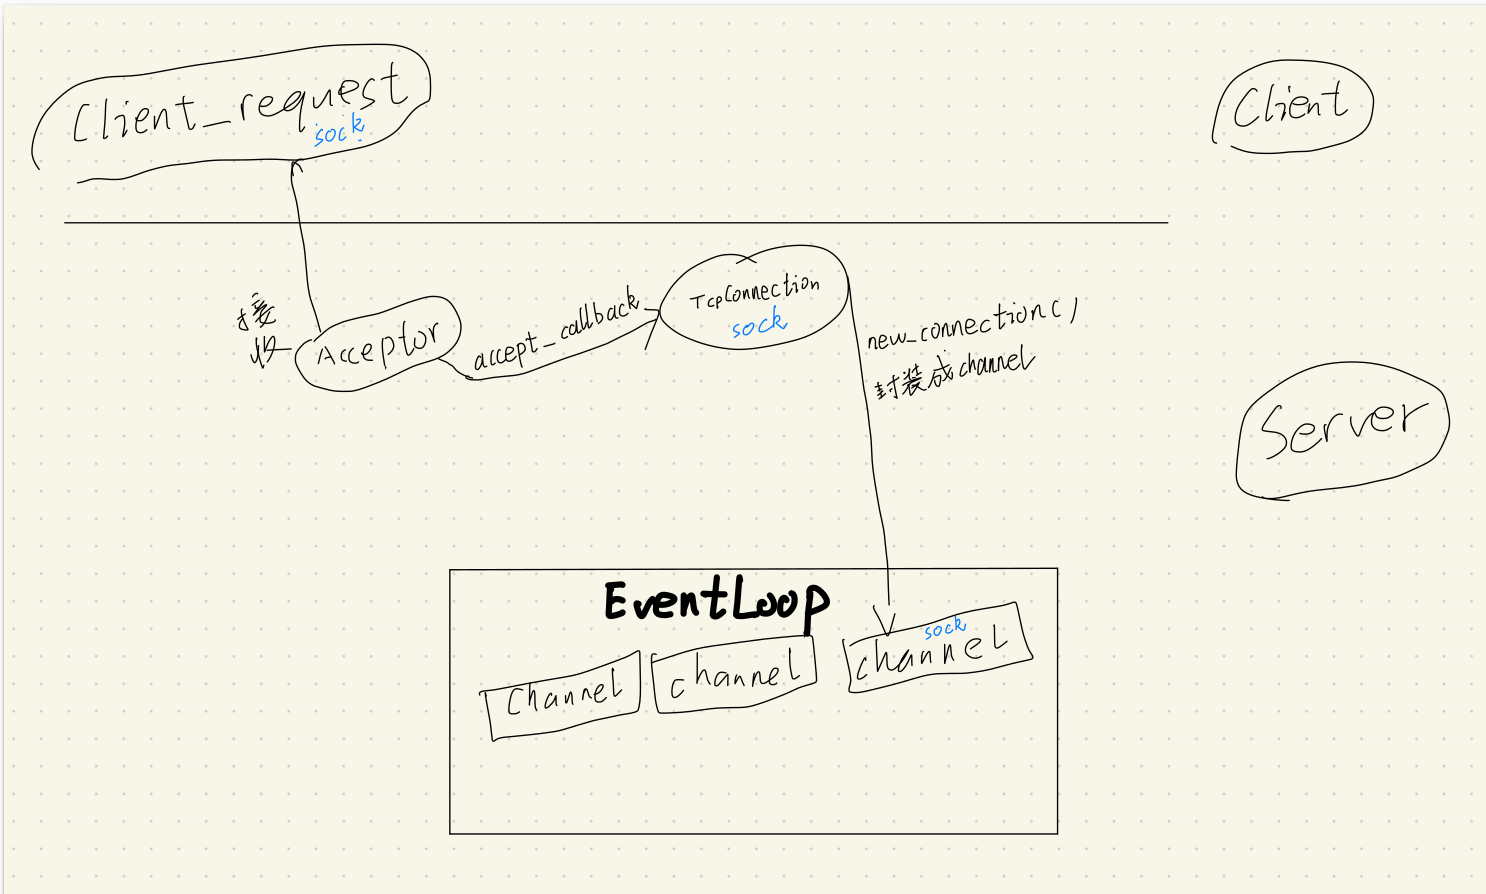 Client_request
sock
Client
接
收
Acceptor
accept_callback
TcpConnection
sock
new_connection()
封装成channel
Server
EventLoop
Channel
channel
sock
channel